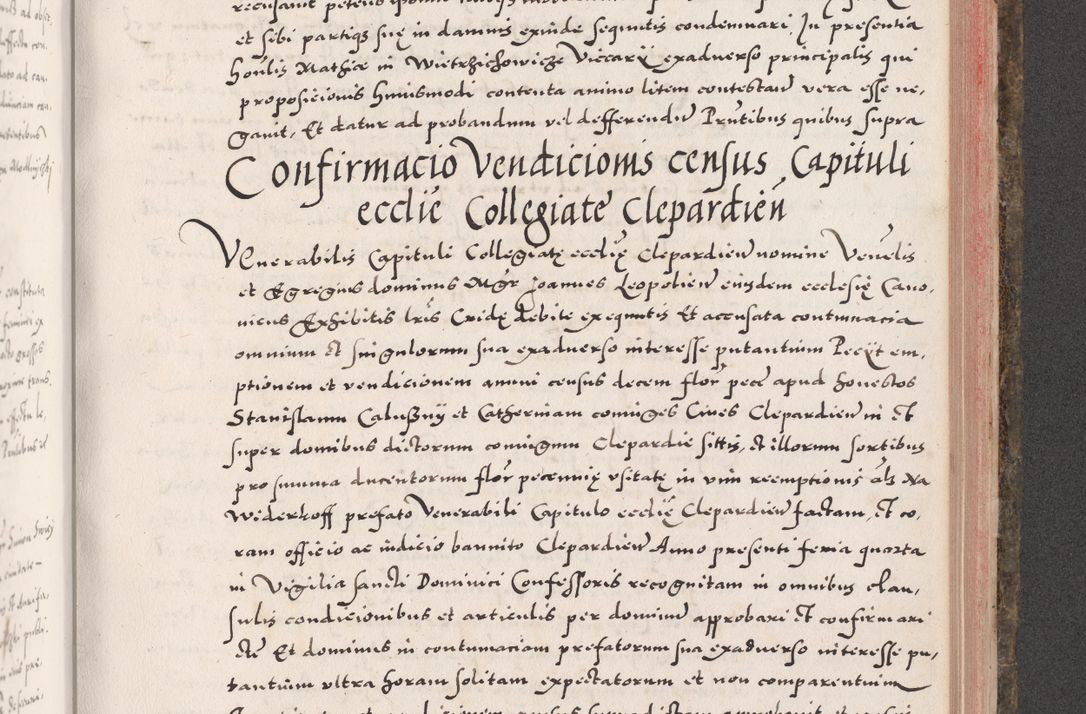 et sibi partiqz suę in damnis exinde sequutis condemnari, In presentia
honlis Mathie in Wietrzichowicze Viccarii exadverso principalis qui
proposicionis huiusmodi contenta animo litem contestan vera esse ne,
gavit, Et datur ad probandum vel defferendū Prntibus quibus supra
Confirmacio Vendicionis census Capituli
ecclie Collegiate Clepardien
VEnerabilis Capituli Collegiatę ecclię Clepardien nomine Venelis
et Egregius dominus Mgr Joannes Leopolien eiusdem ecclesię Cano,
nicus Exhibitis lris Cridę debite exequutis Et accusata contumacia
omnium et singulorum sua exadverso interesse putantium Peciit em,
ptionem et vendicionem annui census decem flor pece apud honestos
Stanislaum Calużny et Catherinam coniuges Cives Clepardien in et
super domibus dictorum coniugum Clepardie sittis, et illorum sortibus
pro summa ducentorum flor pecunię usitatę in vim reemptionis als Na
Widerkoff prefato Venerabili Capitulo ecclię Clepardien factam, et co,
ram officio ac iudicio bannito Clepardien Anno presenti feria quarta
in Vigilia sancti Dominici Confessoris recognitam in omnibus clau,
sulis condicionibus et articulis per dominū approbari et confirmari
etc Et dominus in contumaciam prefatorum sua exadverso interesse pu,
tantium ultra horam solitam expectatorum et non comparentium